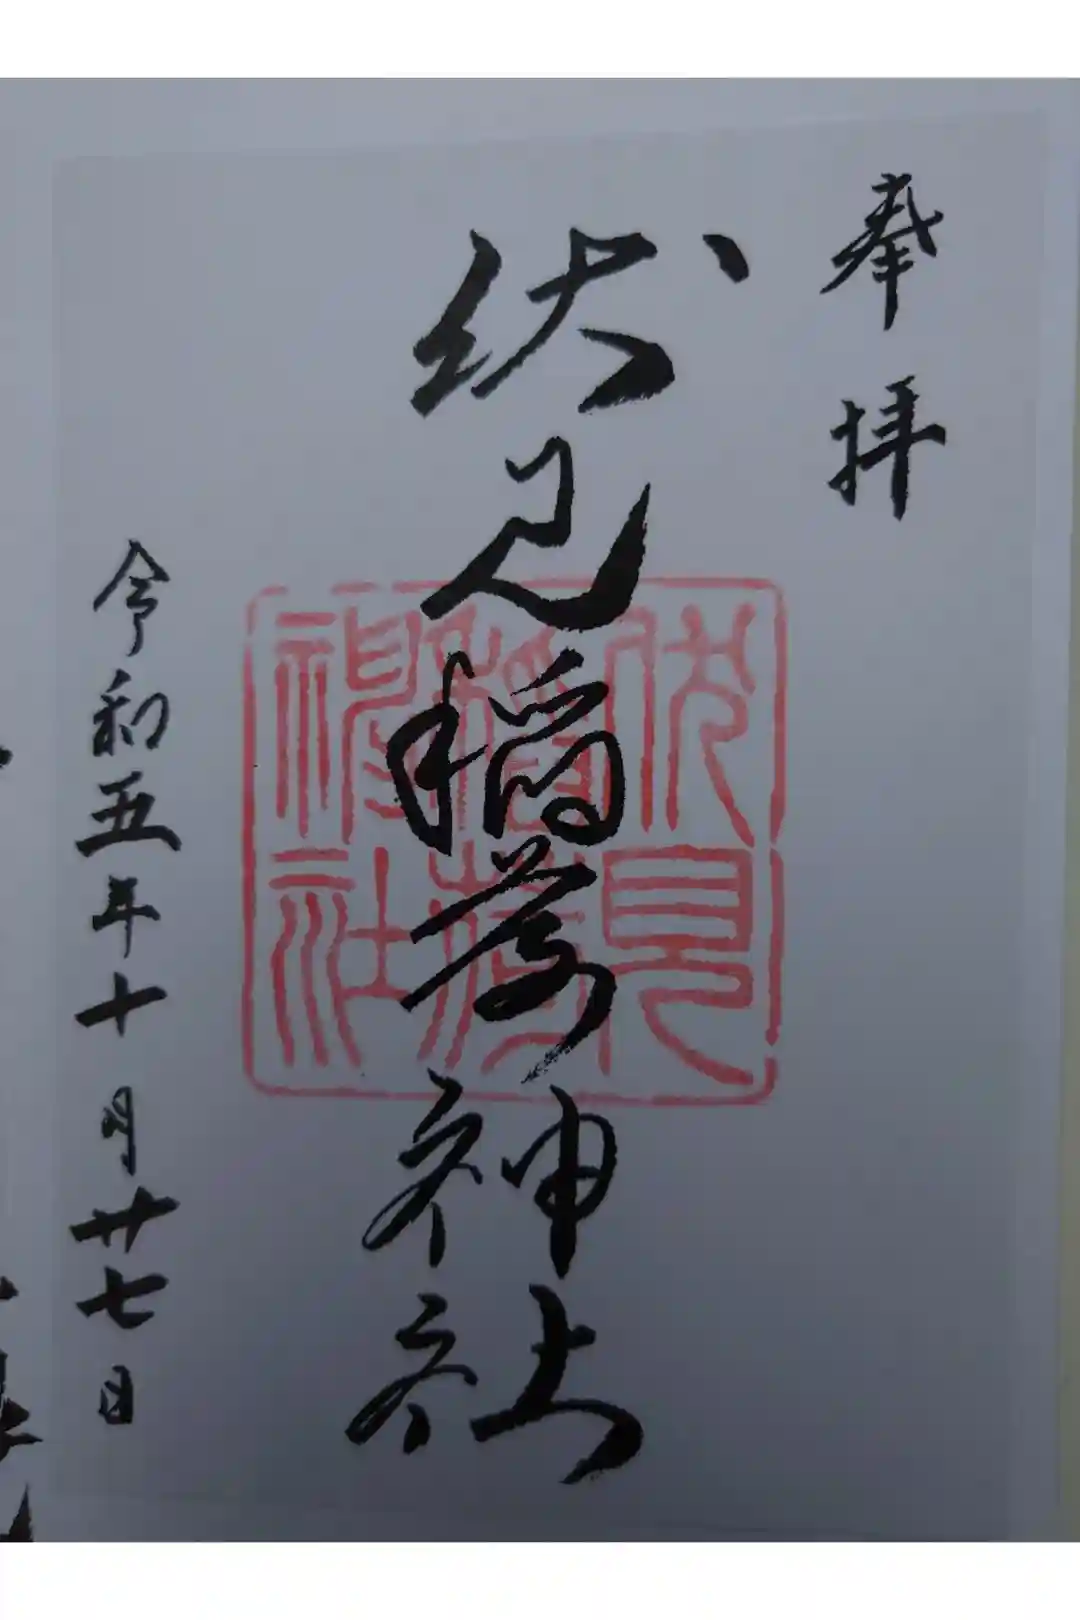 奉拝
伏見稲荷神社
伏見
稲荷
神社
令和五年十月廿七日